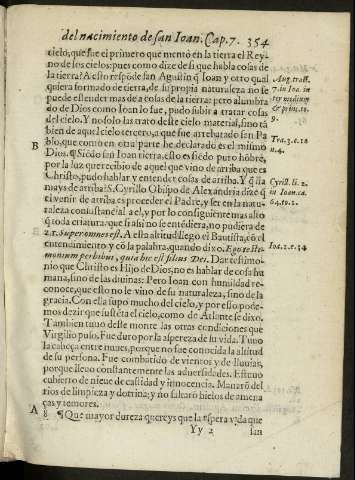 del nacimiento de san Ioan. Cap. 7. 354
cielo, que fue el primero que mentò en la tierra el Rey-
no de los cielos: pues como dize de si que habla cosas de
la tierra? A esto respõde san Agustin q̃ Ioan y otro qual
quiera formado de tierra, de su propia naturaleza no se
puede estender mas de a cosas de la tierra: pero alumbra
do de Dios como Ioan lo fue, pudo subir a tratar cosas
del cielo. Y no solo las trato deste cielo material, sino tã
bien de aquel cielo tercero, a que fue arrebatado san Pa
blo, que como en otra parte he declarado es el mismo
B
Dios. ¶ Siẽdo san Ioan tierra, esto es siẽdo puro hõbre,
por la luz que recibio de aquel que vino de arriba que es
Christo, pudo hablar, y entender cosas de arriba. Y q̃ lla
mays de arriba? S. Cyrillo Obispo de Alexandria dize q̃
el venir de arriba es proceder el Padre, y ser en la natu-
raleza consustancial a el, y por lo consiguiẽte mas alto
que toda criatura: que si assi no se entẽdiera, no pudiera de
zir Super omnes est. A esta altitud llego el Bautista, cõ el
entendimiento y cõ la palabra, quando dixo. Ego teste-
monium perhibui, quia hic est filius Dei. Dar testimo-
nio que Christo es Hijo de Dios, no es hablar de cosa hu
mana, sino de las diuinas: Pero Ioan con humildad re-
conoce, que esto no le vino de su naturaleza, sino de la
gracia. Con ella supo mucho del cielo, y por esso pode-
mos dezir que sustẽta el cielo, como de Atlante se dixo.
Tambien tuuo deste monte las otras condiciones que
Virgilio puso. Fue duro por la aspereza de su vida. Tuuo
la cabeça entre nuues, porque no fue conocida la altitud
de su persona. Fue combatido de vientos y de lluuias,
porque lleuo constantemente las aduersidades. Estuuo
cubierto de nieue de castidad y innocencia. Manarõ del
rios de limpieza y dotrina; y no faltarõ hielos de amena
ças y temores.
A
8 ¶ Que mayor dureza quereys que la aspera vida que
Yy 2 san
Aug. tract.
7. in Io. in
ter medium
& princ. 10.
9.
Tra. 3. c. 18
n. 4.
Cyril. li. 2.
in Ioan. ca.
64. to. 1.
Ioa. 1. c. 34